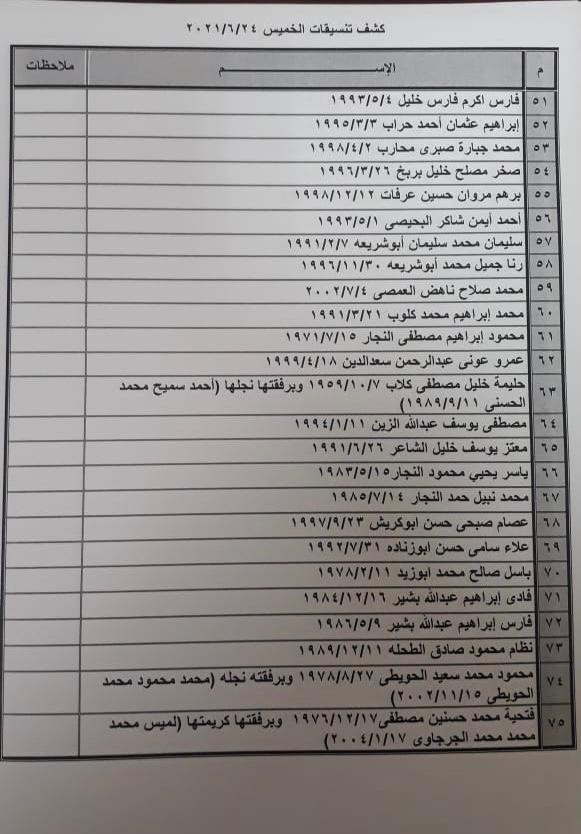 كشف تنسيقات الخميس ٢٠٢١/٦/٢٤
م الإســـــــــم ملاحظات
٥١ فارس اكرم فارس خليل ١٩٩٣/٥/٤
٥٢ إبراهيم عثمان أحمد حراب ١٩٩٥/٣/٣
٥٣ محمد جبارة صبرى محارب ١٩٩٨/٤/٢
٥٤ صخر مصلح خليل بربخ ١٩٩٦/٣/٢٦
٥٥ برهم مروان حسين عرفات ١٩٩٨/١٢/١٢
٥٦ أحمد أيمن شاكر البحيصى ١٩٩٣/٥/١
٥٧ سليمان محمد سليمان أبوشريعه ١٩٩١/٢/٧
٥٨ رنا جميل محمد أبوشريعه ١٩٩٦/١١/٣٠
٥٩ محمد صلاح ناهض العمصى ٢٠٠٢/٧/٤
٦٠ محمد إبراهيم محمد كلوب ١٩٩١/٣/٢١
٦١ محمود إبراهيم مصطفى النجار ١٩٧١/٧/١٥
٦٢ عمرو عونى عبدالرحمن سعدالدين ١٩٩٩/٤/١٨
٦٣ حليمة خليل مصطفى كلاب ١٩٥٩/١٠/٧ وبرفقتها نجلها (أحمد سميح محمد
الحسنى ١٩٨٩/٩/١١)
٦٤ مصطفى يوسف عبدالله الزين ١٩٩٤/١/١١
٦٥ معتز يوسف خليل الشاعر ١٩٩١/٦/٢٦
٦٦ ياسر يحيي محمود النجار١٩٨٣/٥/١٥
٦٧ محمد نبيل حمد النجار ١٩٨٥/٧/١٤
٦٨ عصام صبحى حسن ابوكريش ١٩٩٧/٩/٢٣
٦٩ علاء سامى حسن ابوزناده ١٩٩٢/٧/٣١
٧٠ باسل صالح محمد ابوزيد ١٩٧٨/٢/١١
٧١ فادى إبراهيم عبدالله بشير ١٩٨٤/١٢/١٦
٧٢ فارس إبراهيم عبدالله بشير ١٩٨٦/٥/٩
٧٣ نظام محمود صادق الطحله ١٩٨٩/١٢/١١
٧٤ محمود محمد سعيد الحويطى ١٩٧٨/٨/٢٧ وبرفقته نجله (محمد محمود محمد
الحويطى ٢٠٠٢/١١/١٥)
٧٥ فتحية محمد حسنين مصطفى١٩٧٦/١٢/١٧ وبرفقتها كريمتها (لميس محمد
محمد محمد الجرجاوى ٢٠٠٤/١/١٧)